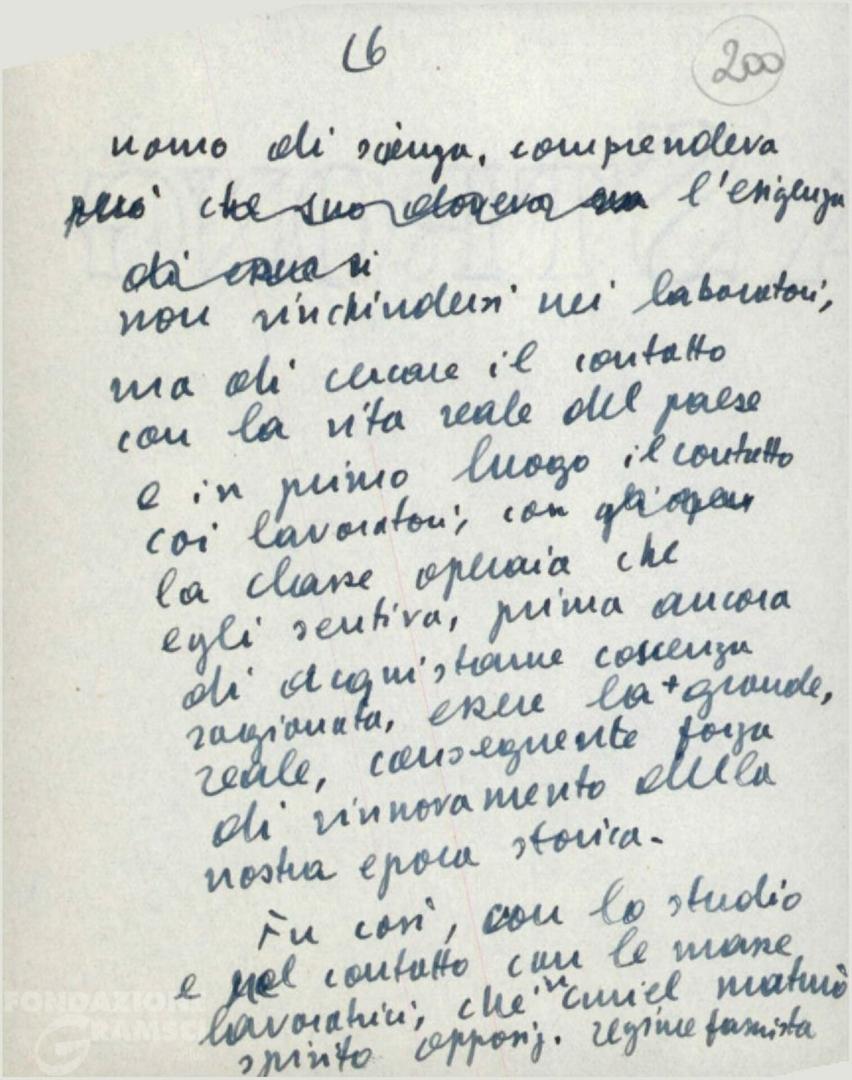 16
200
uomo di scienza, comprendeva
però che suo doveva l'esigenza
di
non rinchiudersi nei laboratori,
ma di cercare il contatto
con la vita reale del paese
e in primo luogo il contatto
coi lavoratori, con gli oper
la classe operaia che
egli sentiva, prima ancora
di acquistarne coscenza
ragionata, essere la + grande,
reale, conseguente forza
di rinnovamento della
nostra epoca storica.
Fu così, con lo studio
e nel contatto con le masse
lavoratrici, che in Curiel maturò
spirito opposiz. regime fascista
FONDAZIONE
GRAMSCI